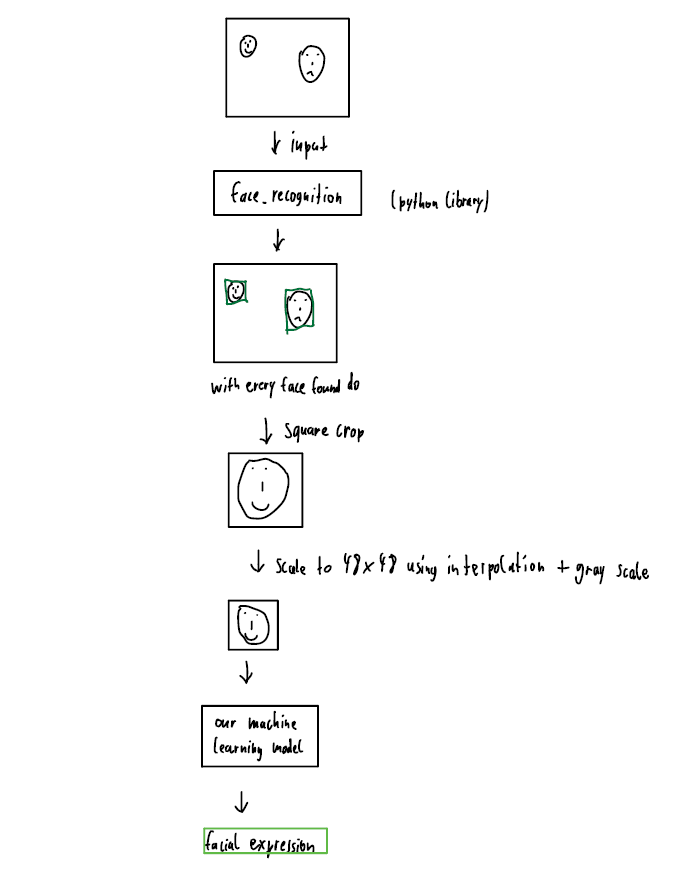 input
face_recognition
(python library)
with every face found do
square crop
scale to 48x48 using interpolation + gray scale
our machine
learning model
facial expression